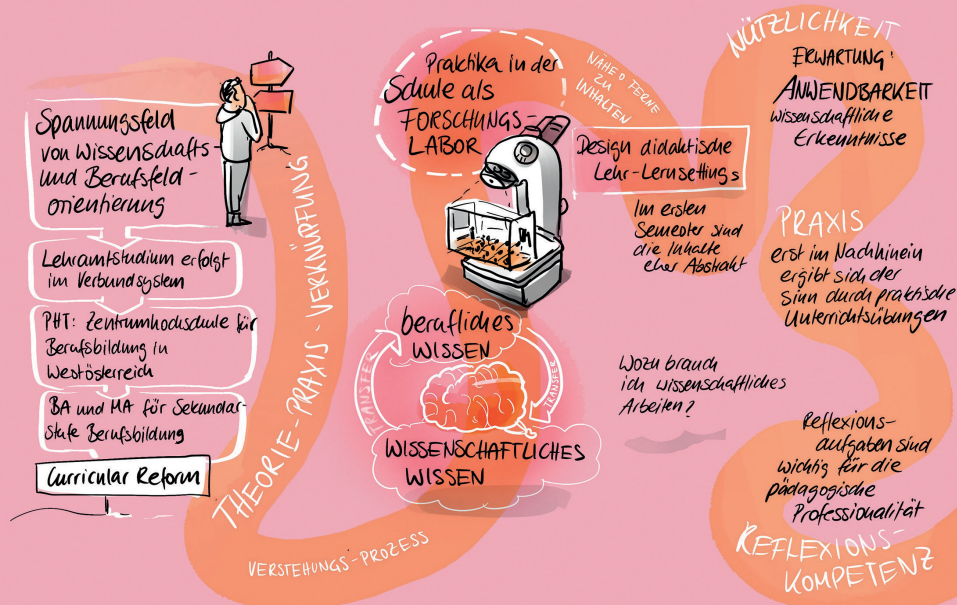 Spannungsfeld
von Wissenschafts-
und Berufsfeld-
orientierung
Lehramtstudium erfolgt
im Verbundsystem
PHT: Zentrumhochschule für
Berufsbildung in
Westösterreich
BA und MA für Sekundar-
stufe Berufsbildung
Curricular Reform
THEORIE-PRAXIS-VERKNÜPFUNG
VERSTEHUNGS-PROZESS
Praktika in der
Schule als
FORSCHUNGS-
LABOR
NÄHE O FERNE
ZU
INHALTEN
Design didaktische
Lehr-Lernsettings
Im ersten
Semester sind
die Inhalte
eher Abstrakt
berufliches
WISSEN
TRANSFER
TRANSFER
WISSENSCHAFTLICHES
WISSEN
Wozu brauch
ich wissenschaftliches
Arbeiten?
NÜTZLICHKEIT
ERWARTUNG:
ANWENDBARKEIT
wissenschaftliche
Erkenntnisse
PRAXIS
erst im Nachhinein
ergibt sich der
Sinn durch praktische
Unterrichtsübungen
Reflexions-
aufgaben sind
wichtig für die
pädagogische
Professionalität
REFLEXIONS-
KOMPETENZ